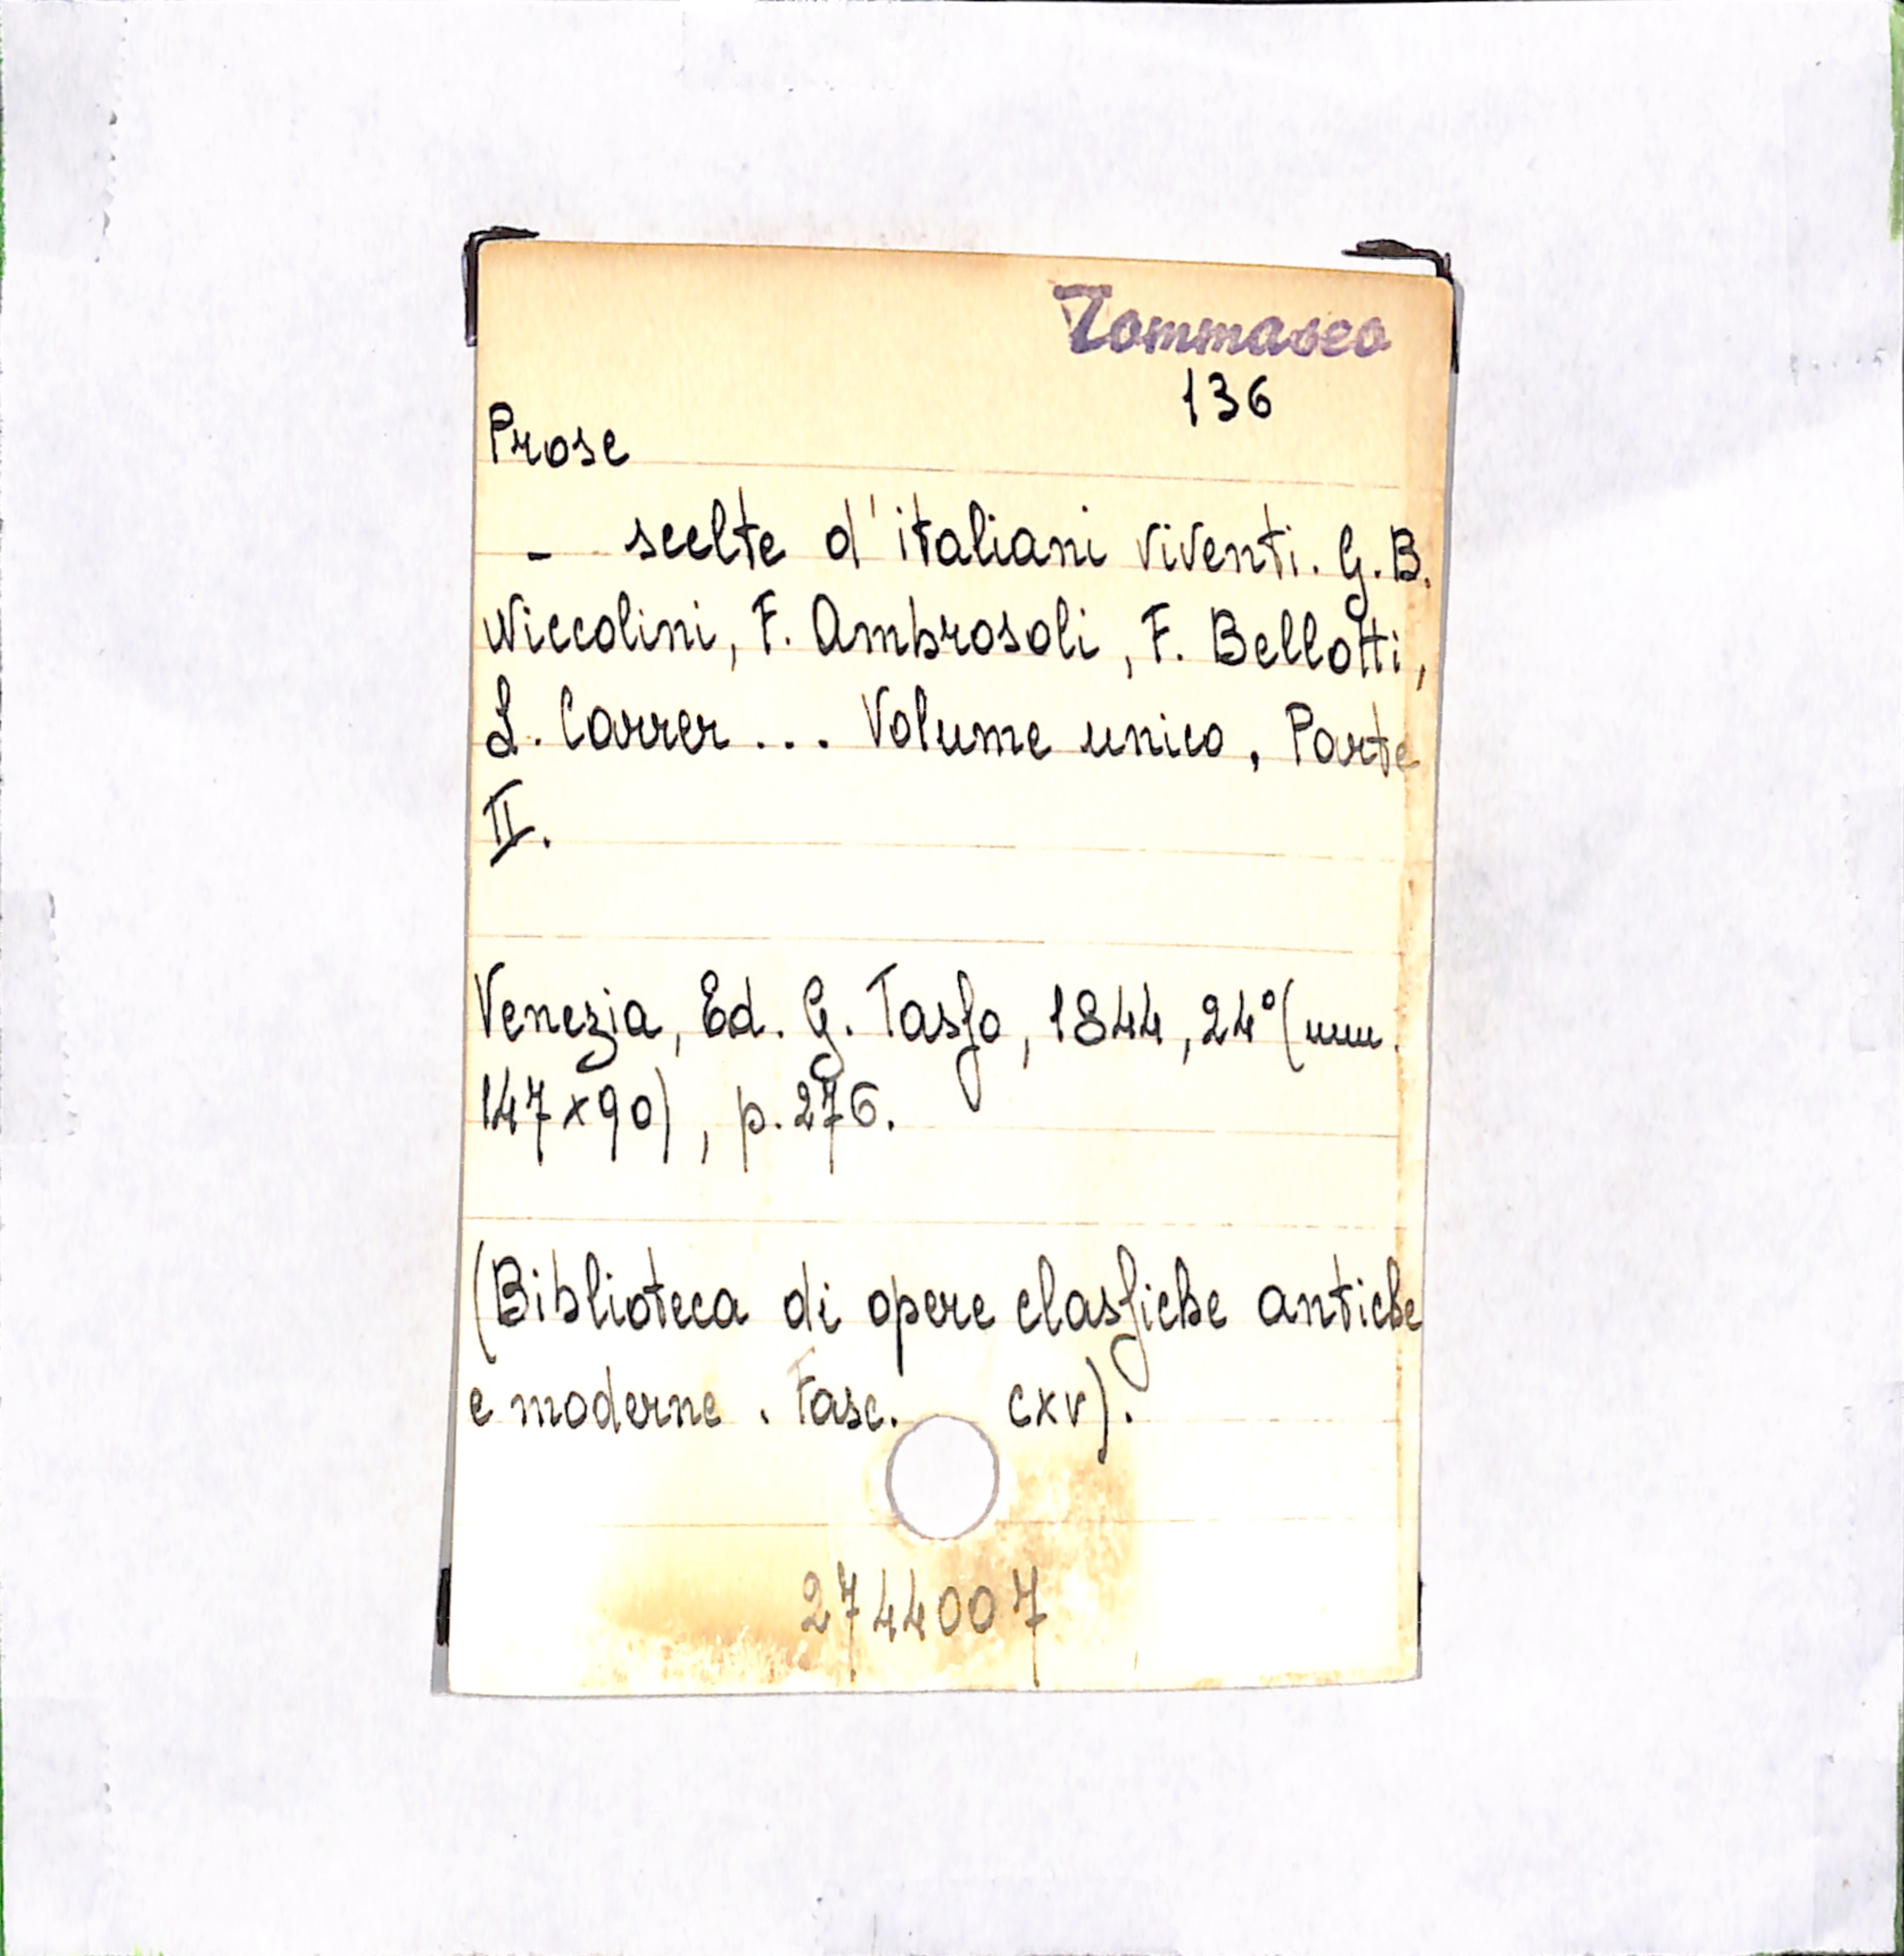 Tommaseo
136
Prose
- scelte d'italiani viventi. G.B.
Niccolini, F. Ambrosoli, F. Bellotti,
L. Carrer ... Volume unico, Parte
II.
Venezia, Ed. G. Tasso, 1844, 24° (mm.
147x90), p. 276.
(Biblioteca di opere classiche antiche
e moderne. Fasc. CXV).
2744007